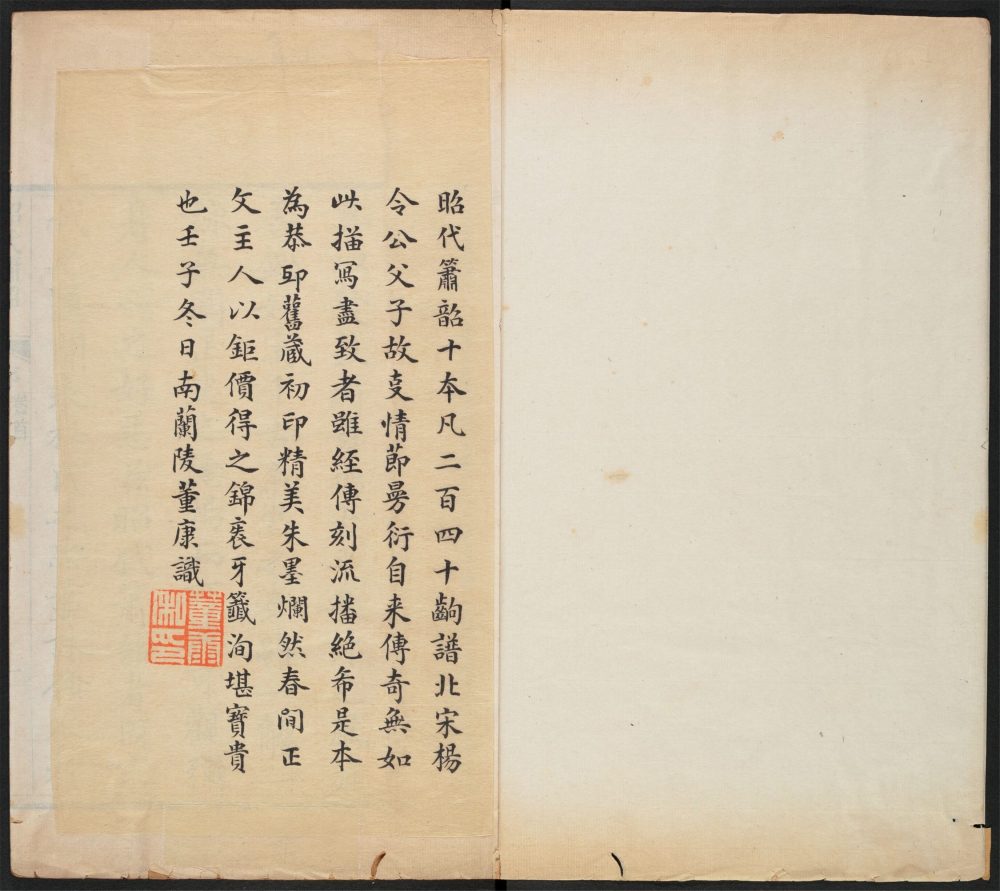 昭代簫韶十本凡二百四十齣譜北宋楊
令公父子故㕝情節曼衍自来傳奇無如
此描寫盡致者雖經傳刻流播絕希是本
為恭邸舊蔵初印精美朱墨爛然春間正
文主人以鉅價得之錦裹牙籤洵堪寶貴
也壬子冬日南蘭陵董康識
董康私印